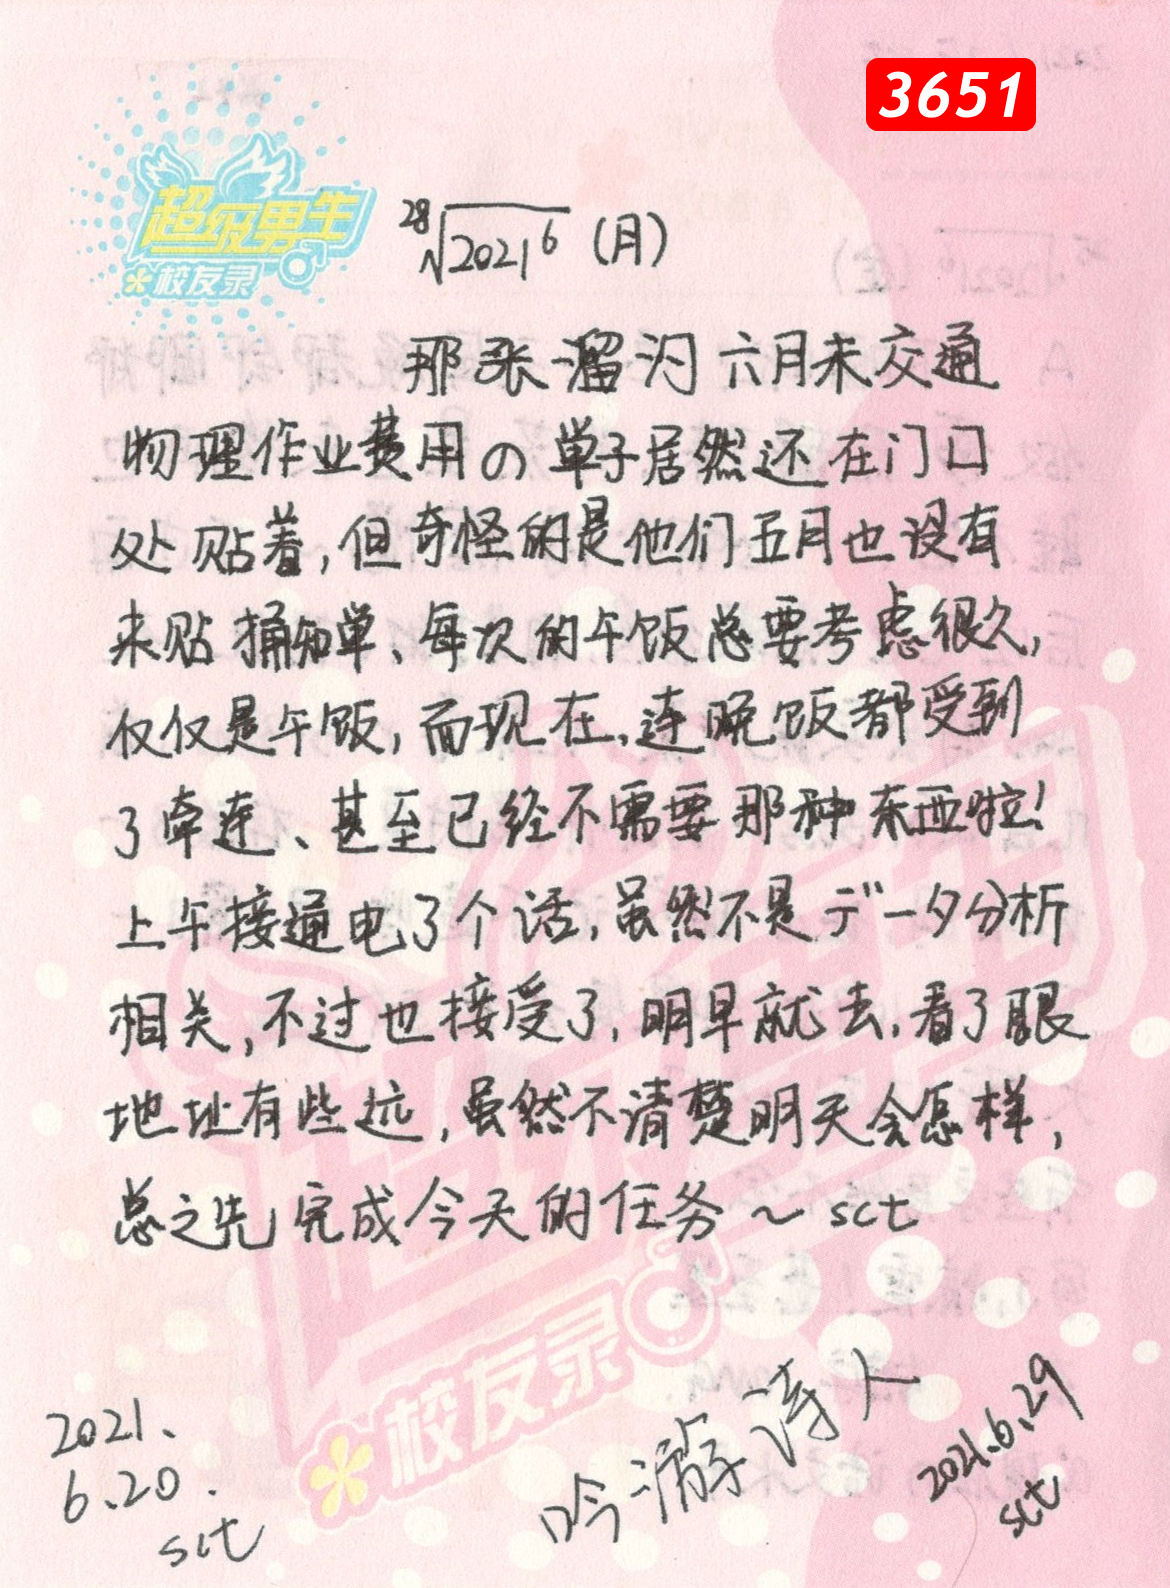 3651
超级男生
校友录
28√2021⁶ (月)
那张溜冯六月末交通
物理作业费用の单子居然还在门口
处贴着,但奇怪的是他们五月也没有
来贴捅知单、每次的午饭总要考虑很久,
仅仅是午饭,而现在,连晚饭都受到
了牵连、甚至已经不需要那种东西啦!
上午接通电了个话,虽然不是データ分析
相关,不过也接受了,明早就去,看了眼
地址有些远,虽然不清楚明天会怎样,
总之先完成今天的任务~sct
校友录
2021、
6.20.
sct
吟游诗人
2021.6.29
sct